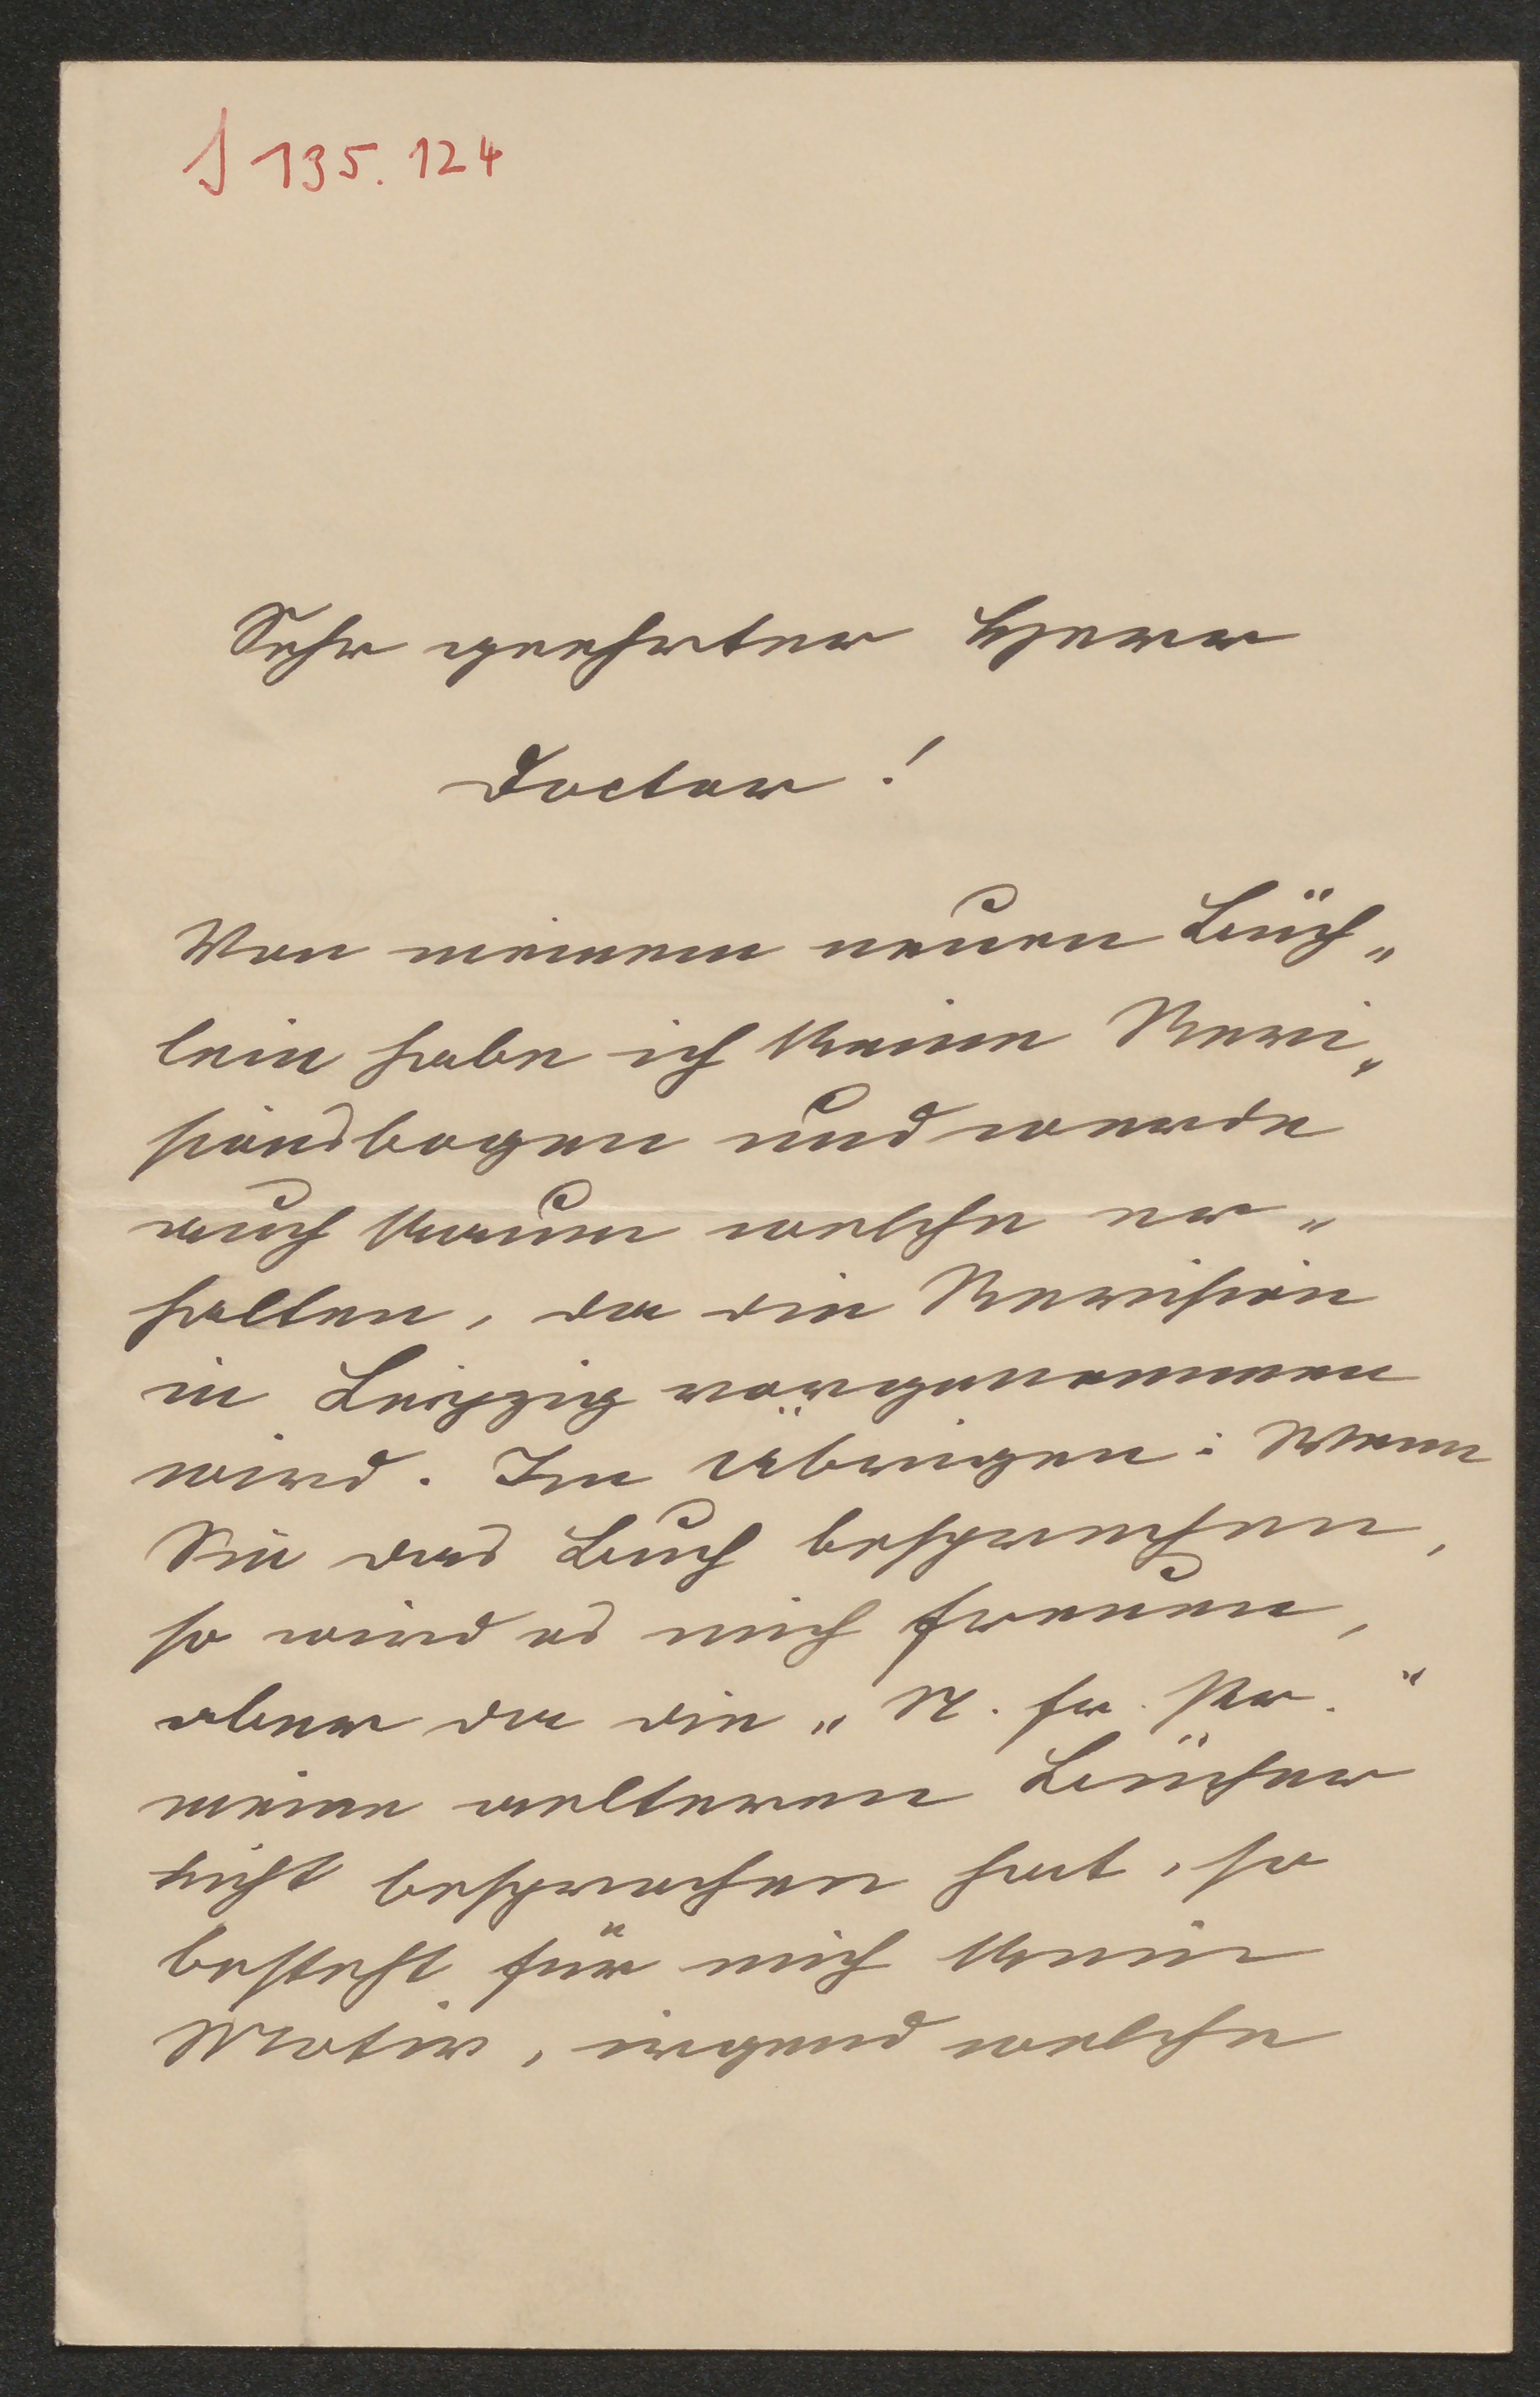 J 135.124
Sehr geehrter Herr
Doctor!
Von meinem neuen Büch„
lein habe ich keine Revi„
sionsbogen und werde
auch kaum welche er„
halten, da die Revision
in Leipzig vorgenommen
wird. Im Uebrigen: Wenn
Sie das Buch besprechen,
so wird es mich freuen,
aber da die „N. fr. Pr.“
meine aelteren Bücher
nicht besprochen hat, so
besteht für mich kein
Motiv, irgend welche